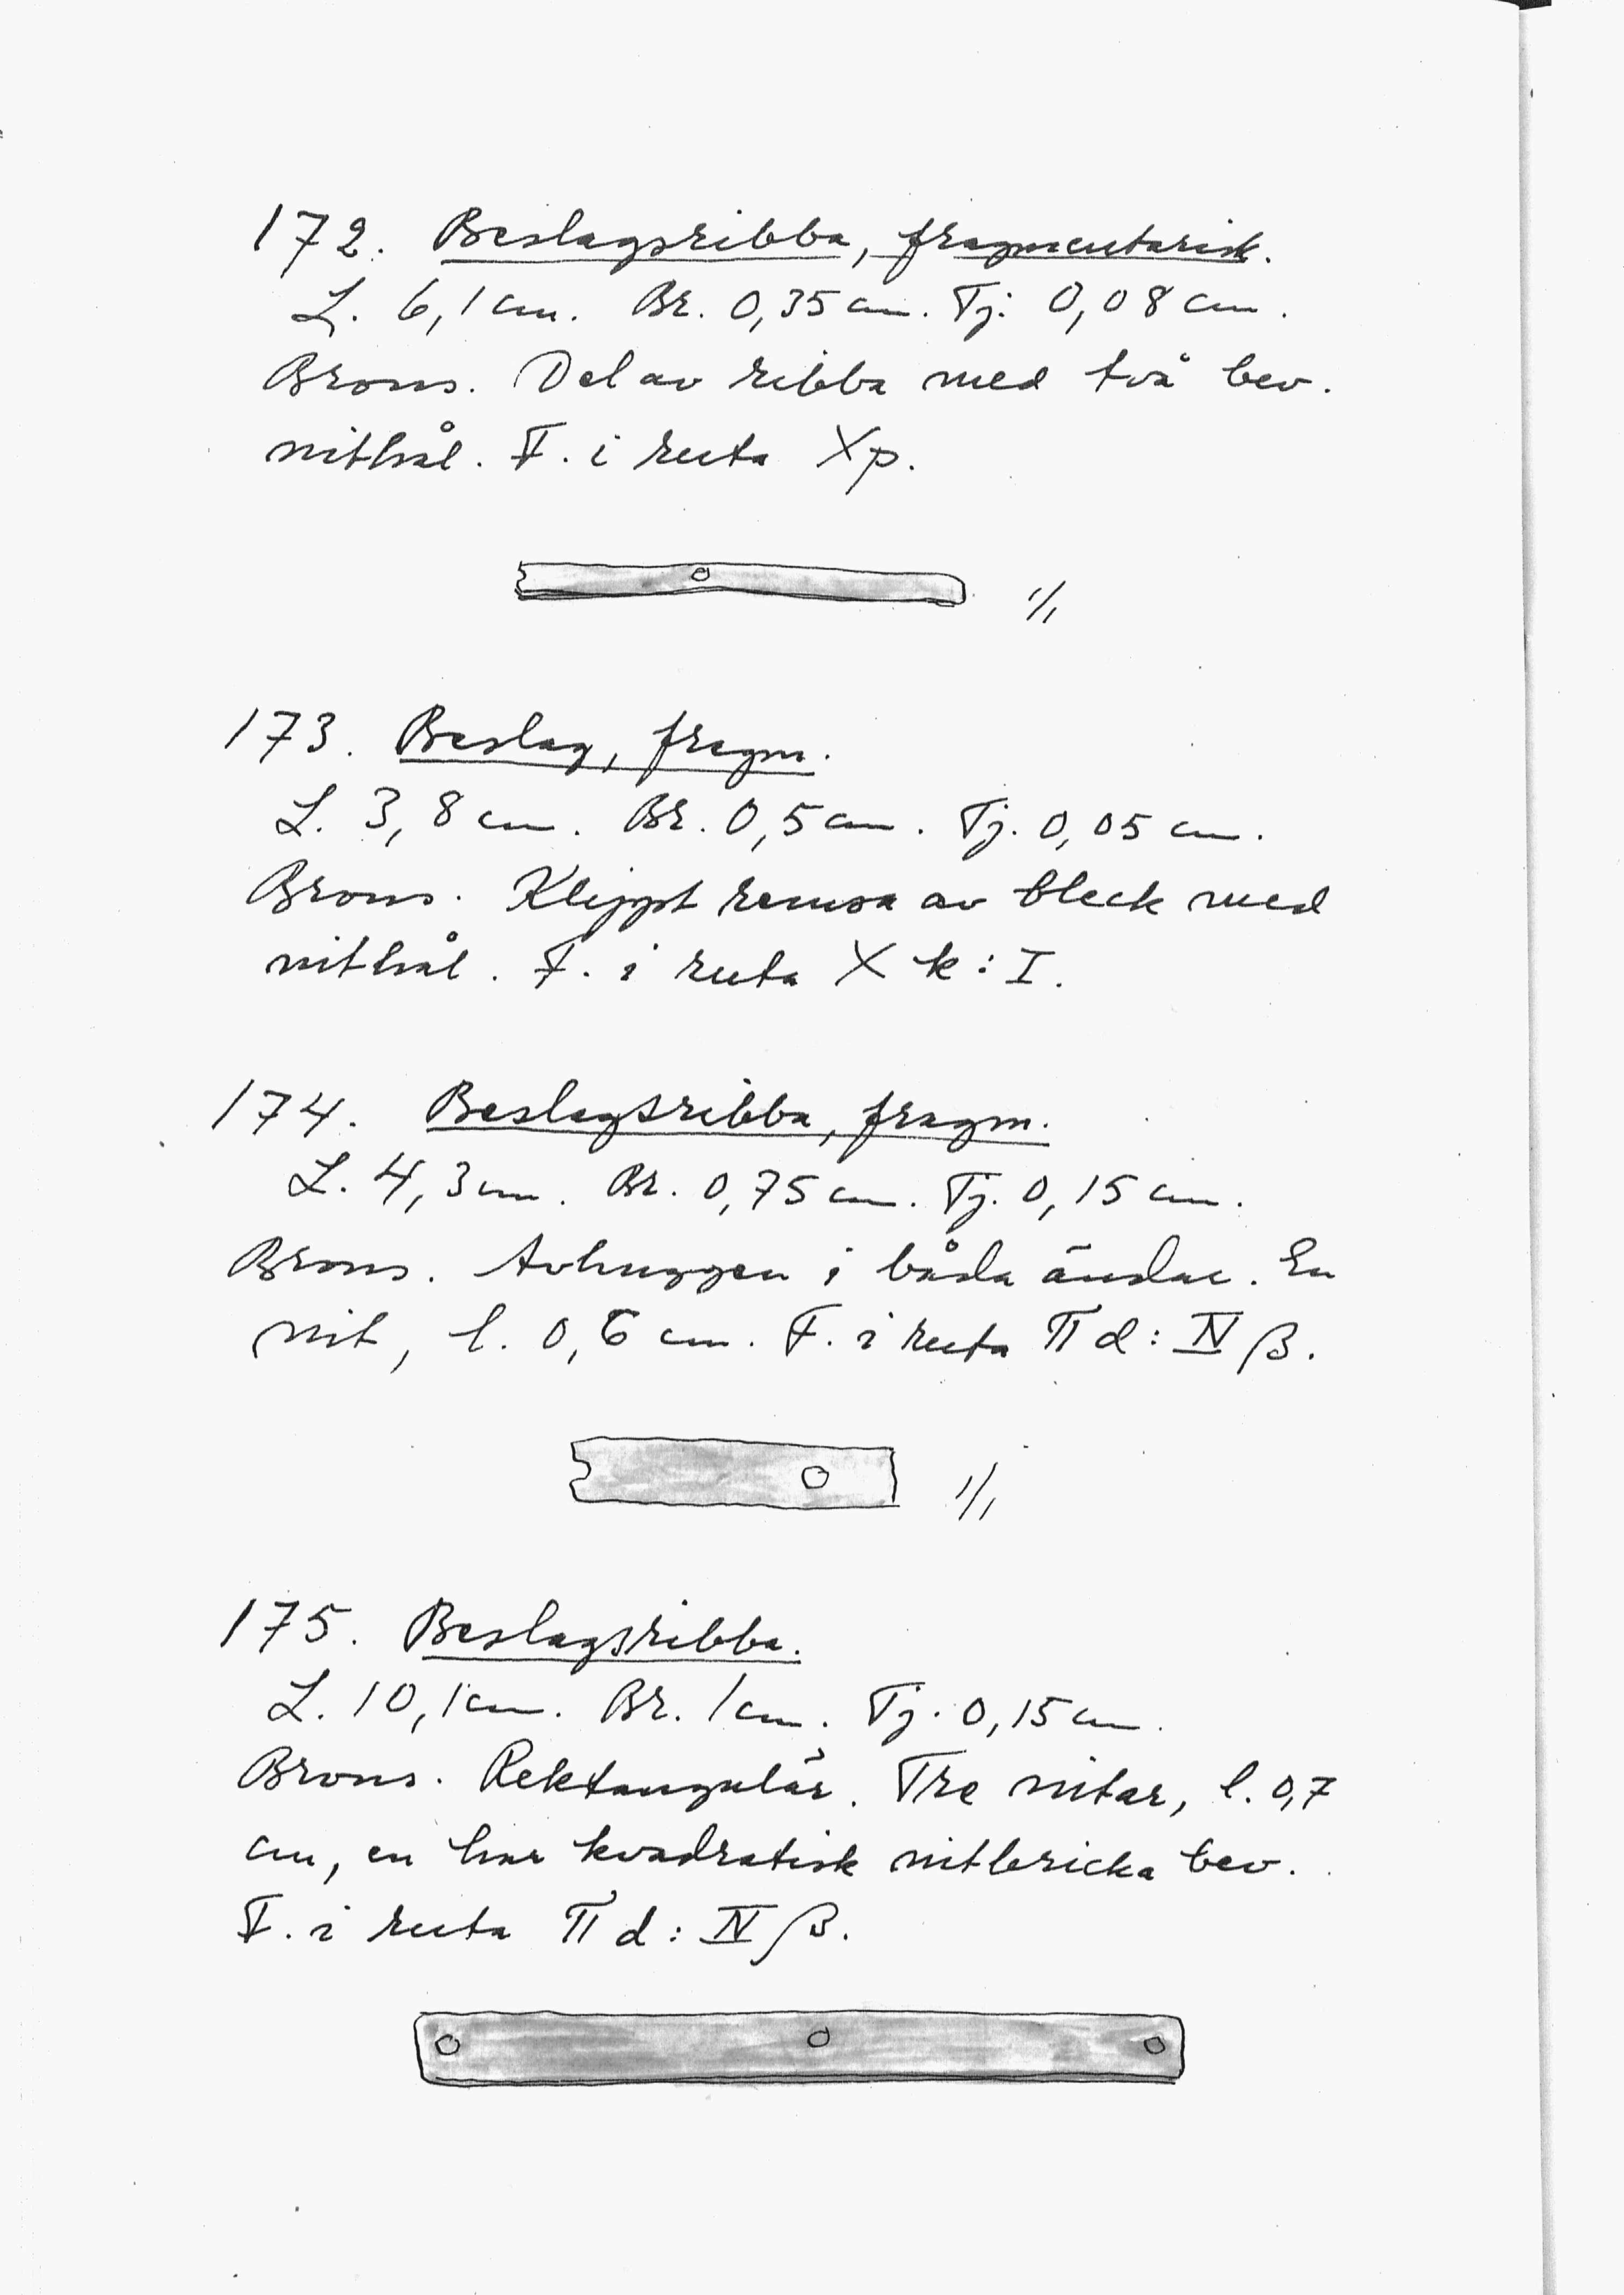 172. Beslagsribba, fragmentarisk.
L. 6,1 cm. Br. 0,35 cm. Tj. 0,08 cm.
Brons. Del av ribba med två bev.
nithål. F. i ruta Xp.
1/1
173. Beslag, fragm.
L. 3,8 cm. Br. 0,5 cm. Tj. 0,05 cm.
Brons. Klippt remsa av bleck med
nithål. F. i ruta X k : I.
174. Beslagsribba, fragm.
L. 4,3 cm. Br. 0,75 cm. Tj. 0,15 cm.
Brons. Avhuggen i båda ändar. En
nit, l. 0,6 cm. F. i ruta Π d : IV β.
1/1
175. Beslagsribba.
L. 10,1 cm. Br. 1 cm. Tj. 0,15 cm.
Brons. Rektangulär. Tre nitar, l. 0,7
cm, en har kvadratisk nitbricka bev.
F. i ruta Π d : IV β.